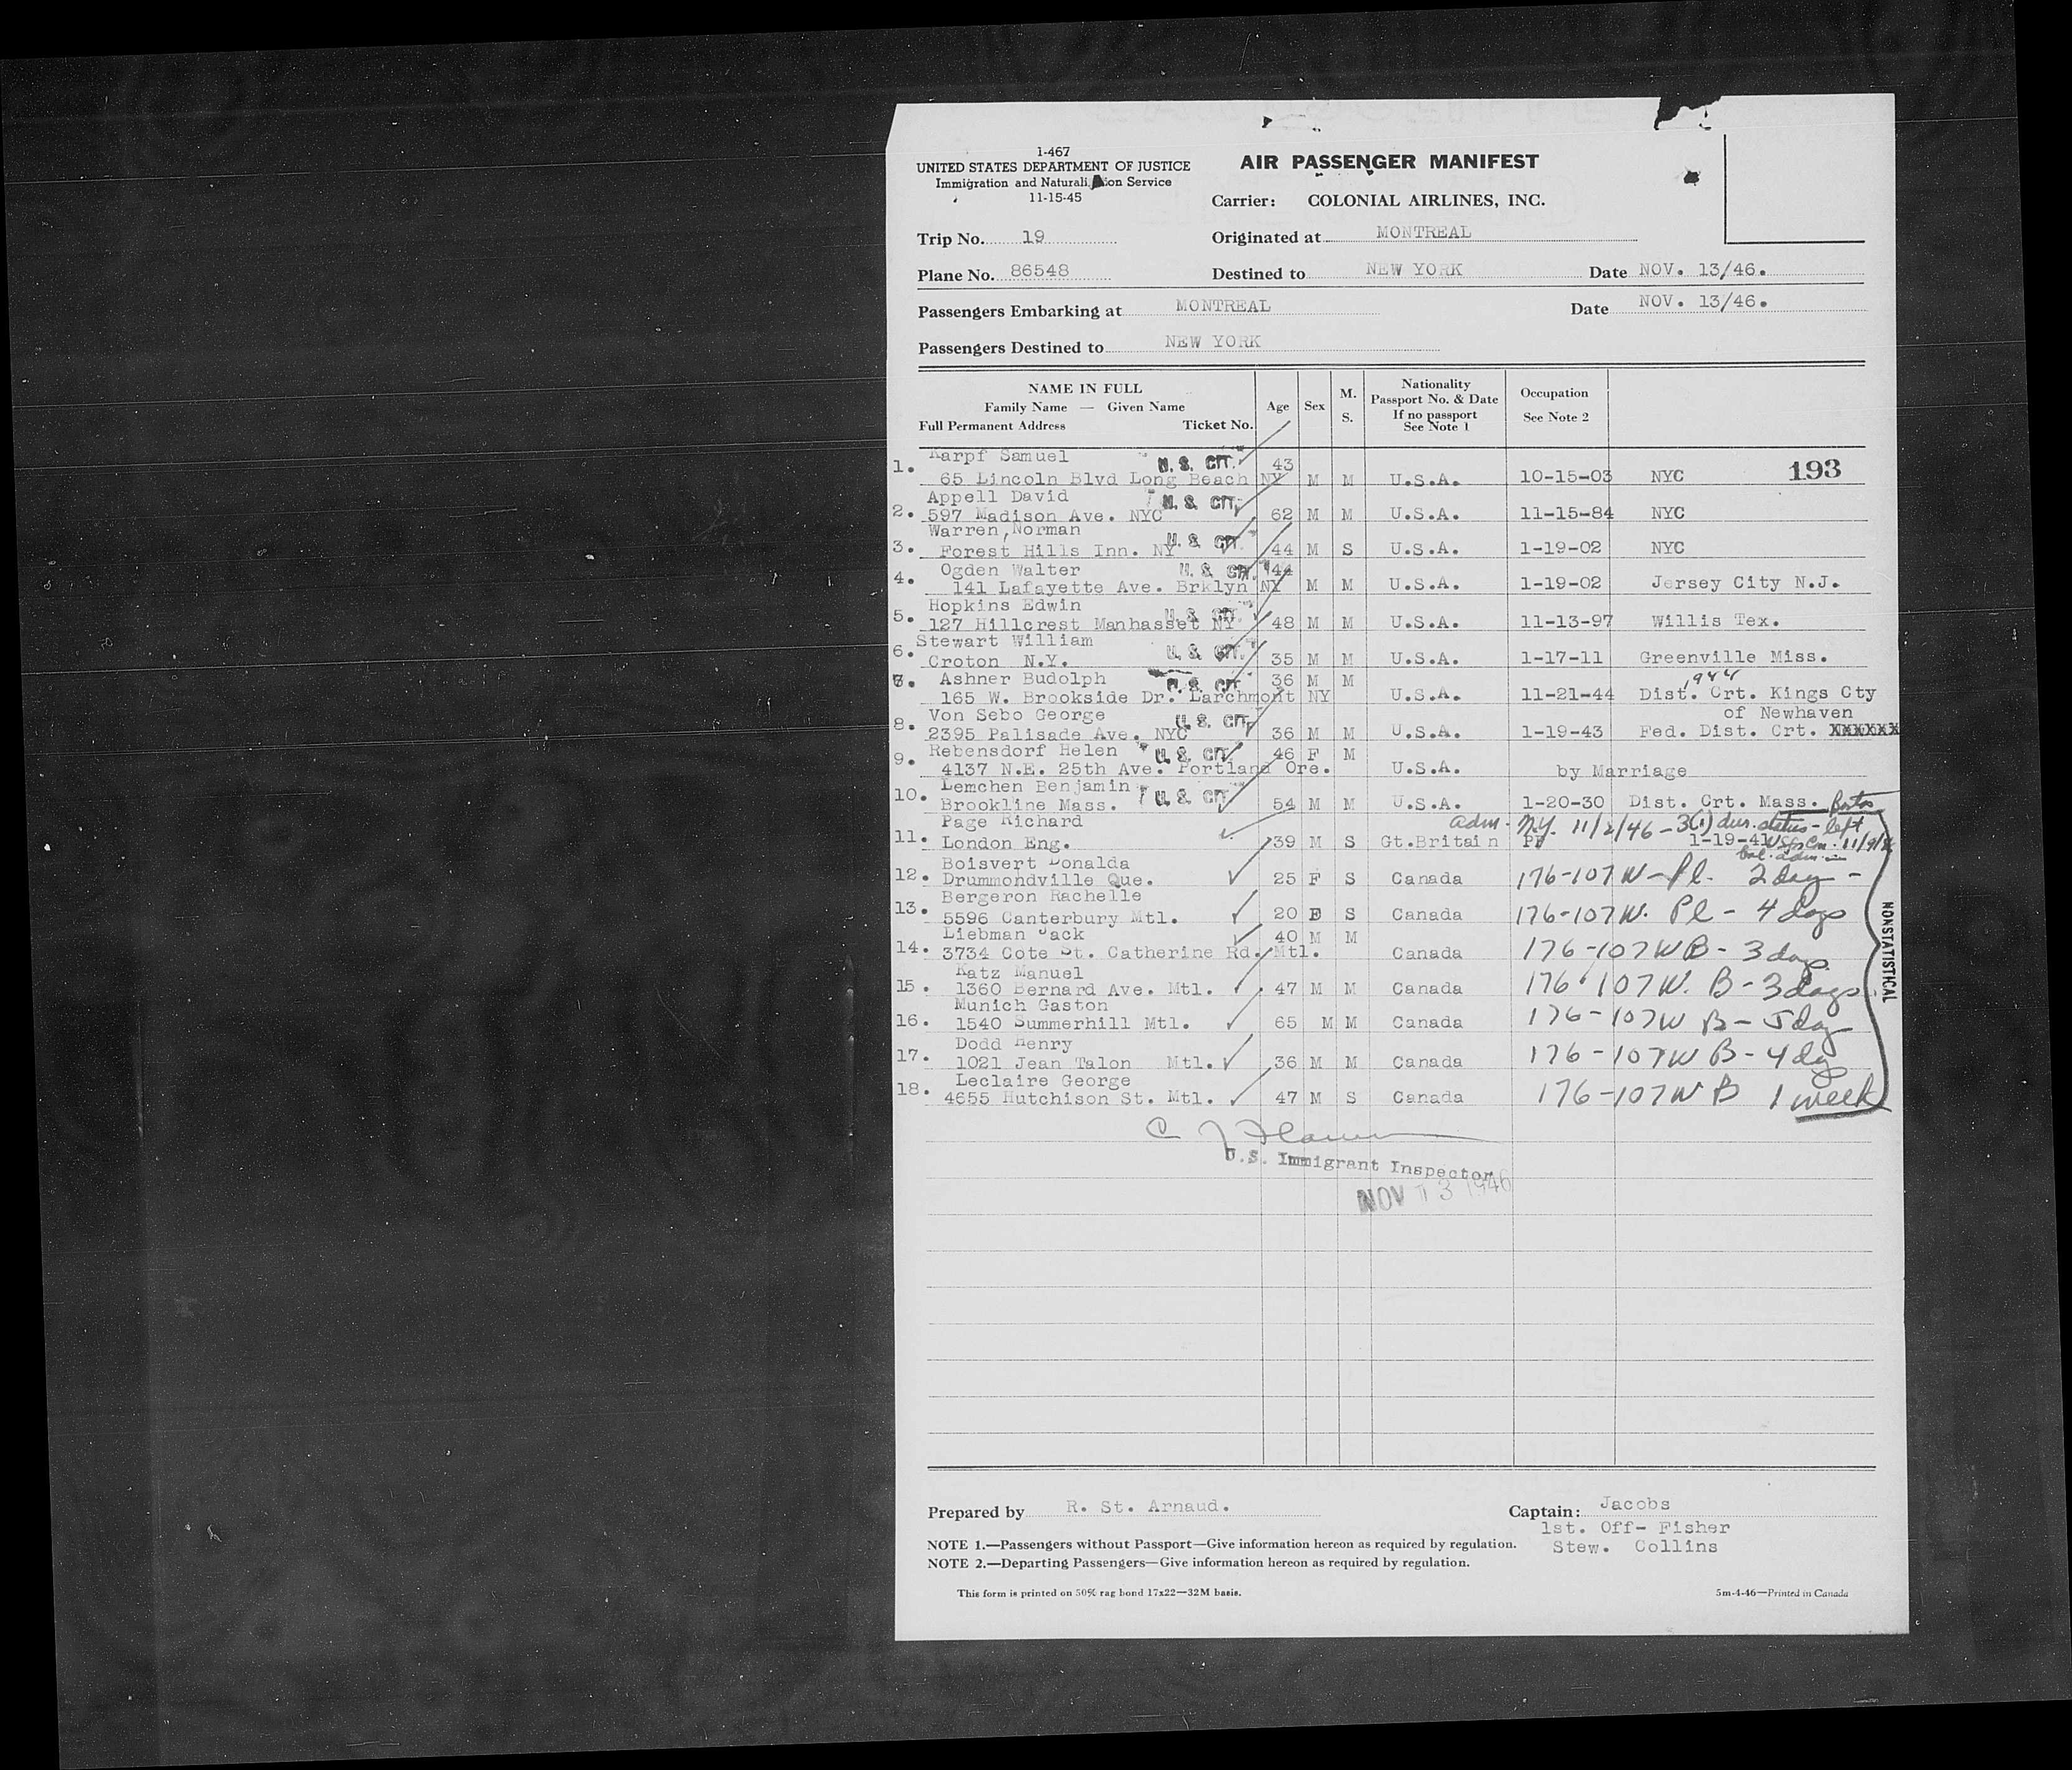 1-467
UNITED STATES DEPARTMENT OF JUSTICE
Immigration and Naturali ion Service
11-15-45
AIR PASSENGER MANIFEST
Carrier: COLONIAL AIRLINES, INC.
Trip No. 19
Originated at MONTREAL
Plane No. 86548
Destined to NEW YORK
Date NOV. 13/46.
Passengers Embarking at MONTREAL
Date NOV. 13/46.
Passengers Destined to NEW YORK
NAME IN FULL
Family Name — Given Name
Full Permanent Address Ticket No.
Age
Sex
M.
S.
Nationality
Passport No. & Date
If no passport
See Note 1
Occupation
See Note 2
193
1. Karpf Samuel U. S. CIT. 43
65 Lincoln Blvd Long Beach NY M M U.S.A. 10-15-03 NYC
2. Appell David U. S. CIT.
597 Madison Ave. NYC 62 M M U.S.A. 11-15-84 NYC
3. Warren,Norman U. S. CIT.
Forest Hills Inn. NY 44 M S U.S.A. 1-19-02 NYC
4. Ogden Walter U. S. CIT. 44
141 Lafayette Ave. Brklyn NY M M U.S.A. 1-19-02 Jersey City N.J.
5. Hopkins Edwin U. S. CIT.
127 Hillcrest Manhasset NY 48 M M U.S.A. 11-13-97 Willis Tex.
6. Stewart William U. S. CIT.
Croton N.Y. 35 M M U.S.A. 1-17-11 Greenville Miss.
7. Ashner Budolph U. S. CIT. 36 M M 1944
165 W. Brookside Dr. Larchmont NY U.S.A. 11-21-44 Dist. Crt. Kings Cty
8. Von Sebo George U. S. CIT. of Newhaven
2395 Palisade Ave. NYC 36 M M U.S.A. 1-19-43 Fed. Dist. Crt. XXXXXX
9. Rebensdorf Helen U. S. CIT 46 F M
4137 N.E. 25th Ave. Portland Ore. U.S.A. by Marriage
10. Lemchen Benjamin U. S. CIT
Brookline Mass. 54 M M U.S.A. 1-20-30 Dist. Crt. Mass. Boston
11. Page Richard adm. N.Y. 11/2/46 - 3(1) dur. status - left
London Eng. 39 M S Gt.Britain PP 1-19-41
12. Boisvert Donalda
Drummondville Que. 25 F S Canada 176-107W - Pl. 2 day -
13. Bergeron Rachelle
5596 Canterbury Mtl. 20 F S Canada 176-107W. Pl - 4 days
14. Liebman Jack 40 M M
3734 Cote St. Catherine Rd. Mtl. Canada 176-107W B - 3 days
15. Katz Manuel
1360 Bernard Ave. Mtl. 47 M M Canada 176-107W. B - 3 days
16. Munich Gaston
1540 Summerhill Mtl. 65 M M Canada 176-107W B - 5 day
17. Dodd Henry
1021 Jean Talon Mtl. 36 M M Canada 176-107W B - 4 dy
18. Leclaire George
4655 Hutchison St. Mtl. 47 M S Canada 176-107W B 1 week
NONSTATISTICAL
U.S. Immigrant Inspector
NOV 13 1946
Prepared by R. St. Arnaud.
Captain: Jacobs
1st. Off- Fisher
Stew. Collins
NOTE 1.—Passengers without Passport—Give information hereon as required by regulation.
NOTE 2.—Departing Passengers—Give information hereon as required by regulation.
This form is printed on 50% rag bond 17x22—32M basis.
5m-4-46—Printed in Canada